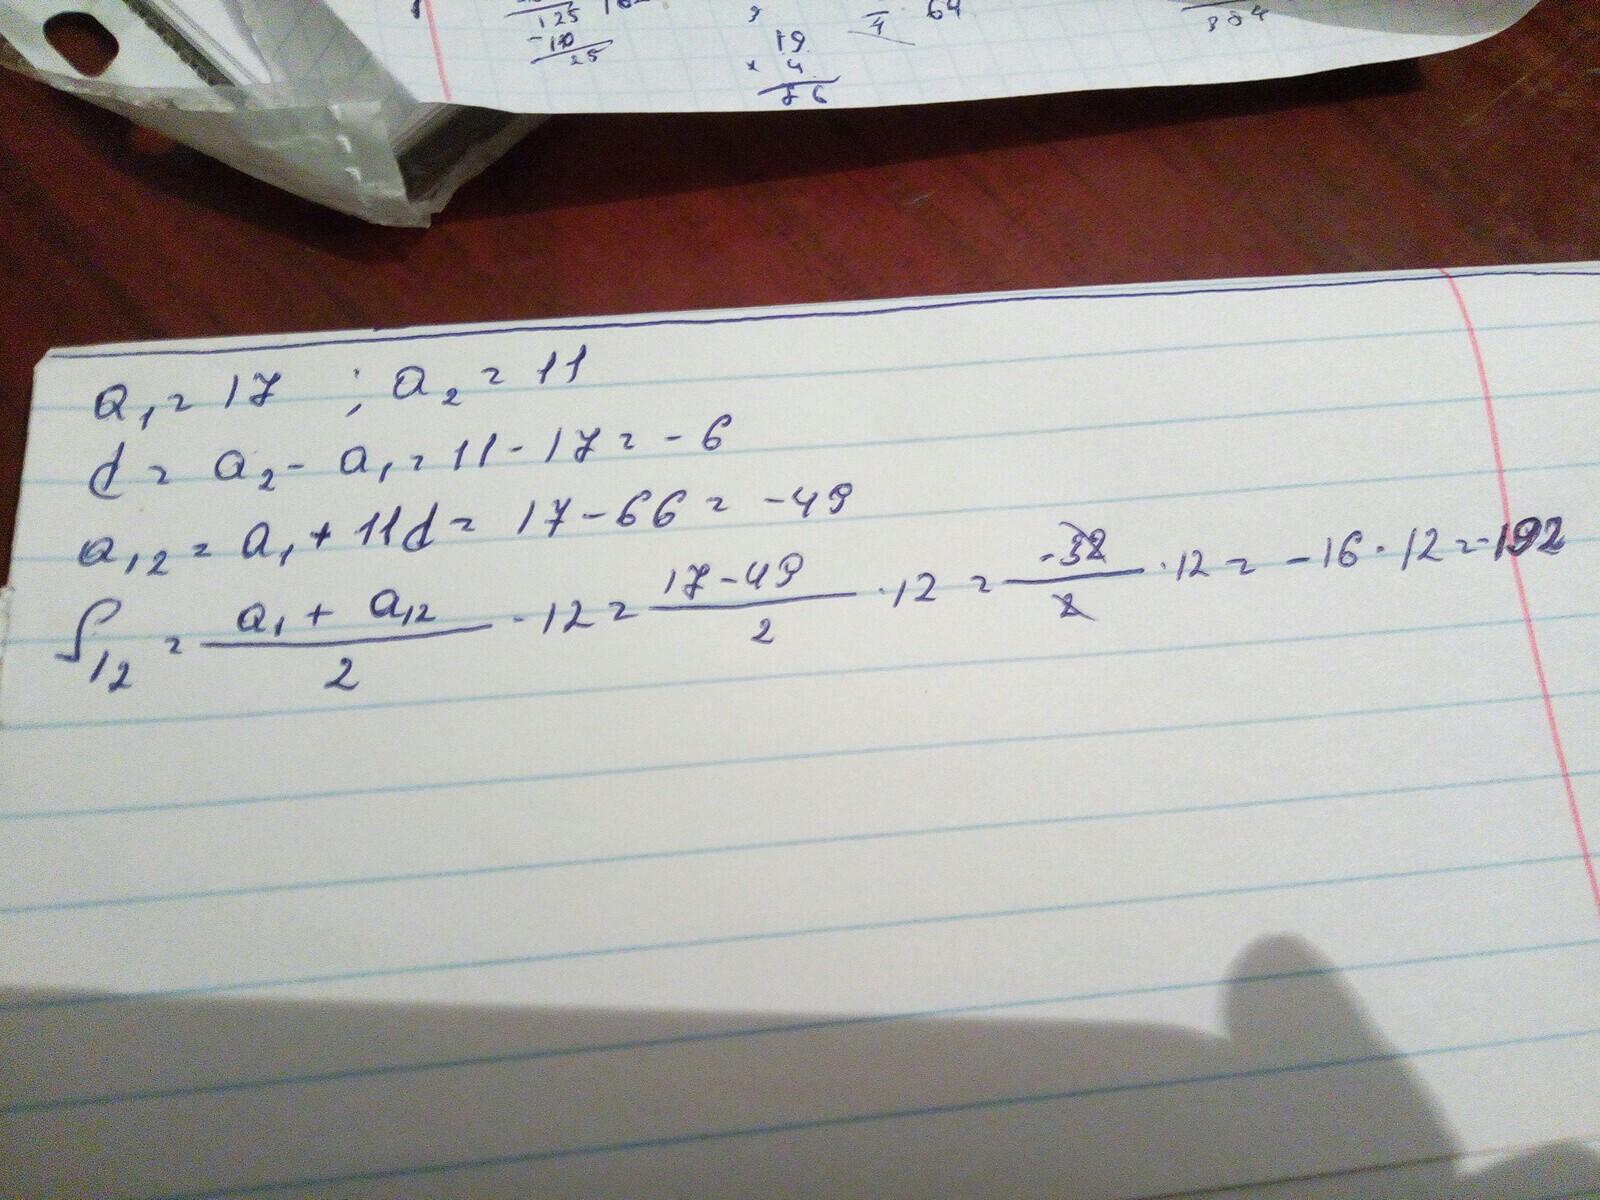 125
25
19
× 4
76
4 · 64
a₁ = 17 ; a₂ = 11
d = a₂ - a₁ = 11 - 17 = -6
a₁₂ = a₁ + 11d = 17 - 66 = -49
S₁₂ = (a₁ + a₁₂)/2 · 12 = (17 - 49)/2 · 12 = -32/2 · 12 = -16 · 12 = -192